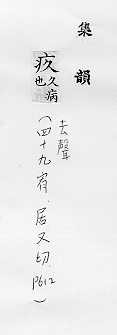 集韻
疚 久病也
去聲
(四十九宥.居又切.P612)